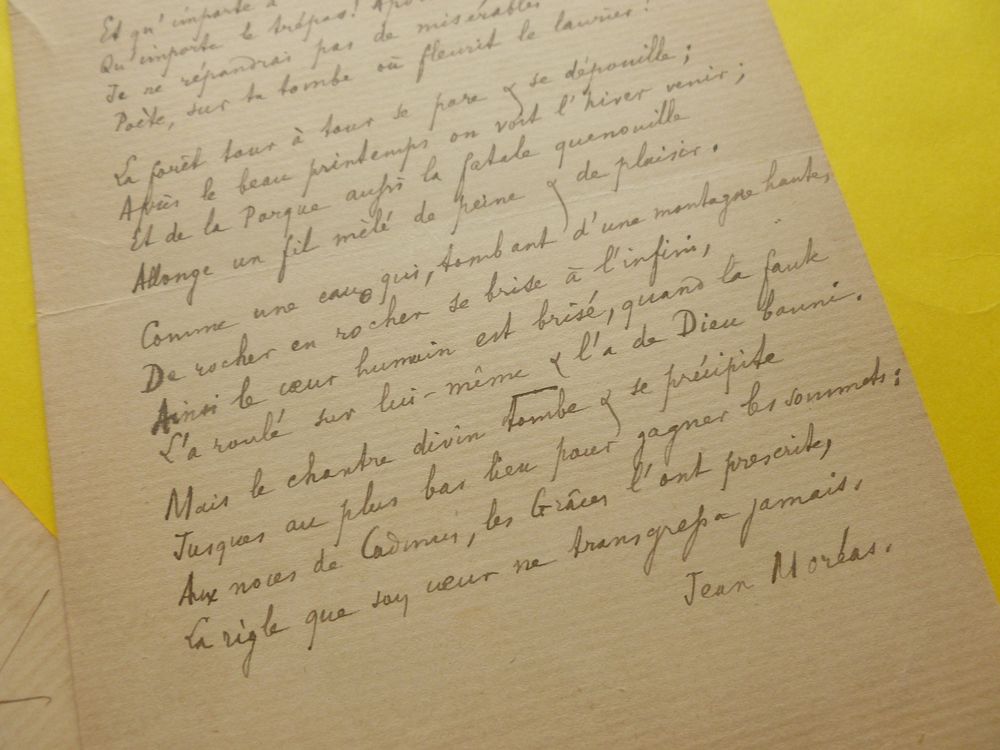 Et qu'importe à
Qu'importe le trépas! Apo
Je ne répandrai pas de misérables
Poète, sur ta tombe où fleurit le laurier!
La forêt tour à tour se pare & se dépouille;
Après le beau printemps on voit l'hiver venir;
Et de la Parque aussi la fatale quenouille
Allonge un fil mêlé de peine & de plaisir.
Comme une eau qui, tombant d'une montagne haute,
De rocher en rocher se brise à l'infini,
Ainsi le cœur humain est brisé, quand la faute
L'a roulé sur lui-même & l'a de Dieu banni.
Mais le chantre divin tombe & se précipite
Jusques au plus bas lieu pour gagner les sommets:
Aux noces de Cadmus, les Grâces l'ont prescrite,
La règle que soy cœur ne transgressa jamais.
Jean Moréas.